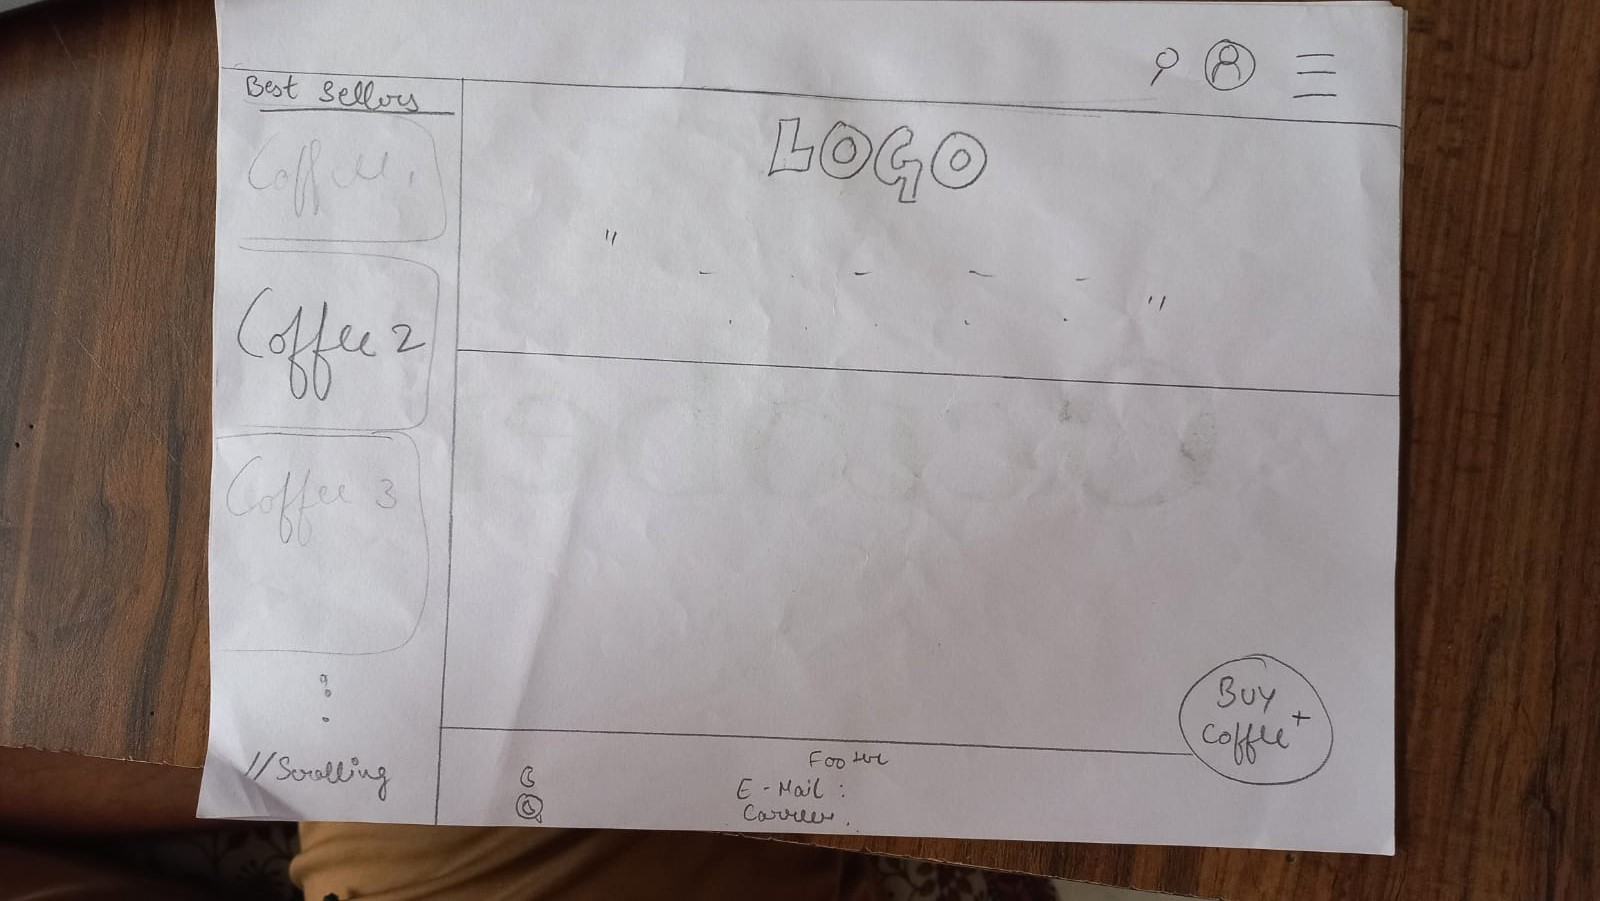 Best Sellers
Coffee 1
Coffee 2
Coffee 3
//Scrolling
LOGO
"
"
BUY
Coffee +
Footer
E-Mail :
Carrier.